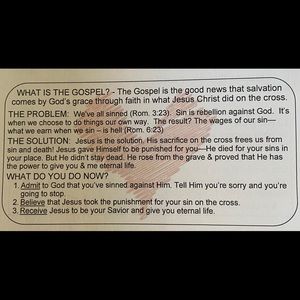 WHAT IS THE GOSPEL? - The Gospel is the good news that salvation
comes by God's grace through faith in what Jesus Christ did on the cross.
THE PROBLEM: We've all sinned (Rom. 3:23). Sin is rebellion against God. It's
when we choose to do things our own way. The result? The wages of our sin—
what we earn when we sin – is hell (Rom. 6:23)
THE SOLUTION: Jesus is the solution. His sacrifice on the cross frees us from
sin and death! Jesus gave Himself to be punished for you—He died for your sins in
your place. But He didn't stay dead. He rose from the grave & proved that He has
the power to give you & me eternal life.
WHAT DO YOU DO NOW?
1. Admit to God that you've sinned against Him. Tell Him you're sorry and you're
going to stop.
2. Believe that Jesus took the punishment for your sin on the cross.
3. Receive Jesus to be your Savior and give you eternal life.